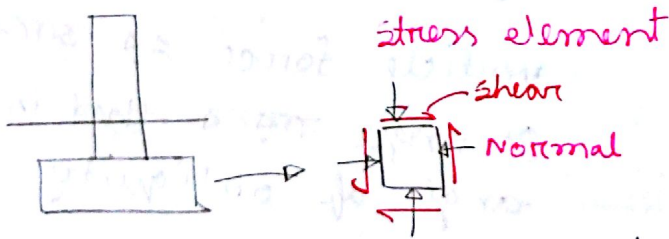 Stress element
shear
Normal